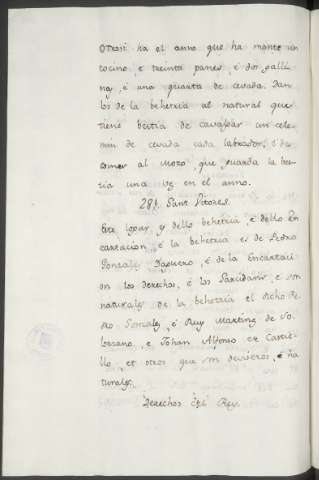 Otrosi ha el anno que ha monte un
tocino, e treinta panes, e dos galli
nas, e una quarta de cevada. Dan
los de la behetria al natural que
tiene bestia de cavalgar un cele
min de cevada cada labrador, e de
comer al Mozo, que guarda la bes
tia una vez en el anno.
281. Sant Vitores.
Este logar y dello behetria, e dello En
cartacion, e la behetria es de Pedro
Gonzalez Daguero, e de la Encartaci
on los derechos, e los
naturales de la behetria el dicho Pe
dro Gonzalez, e Ruy Martinez de So
lorzano, e Johan Alfonso de Castie
llo, et otros que son deviseros, e na
turales.
Derechos del Rey.